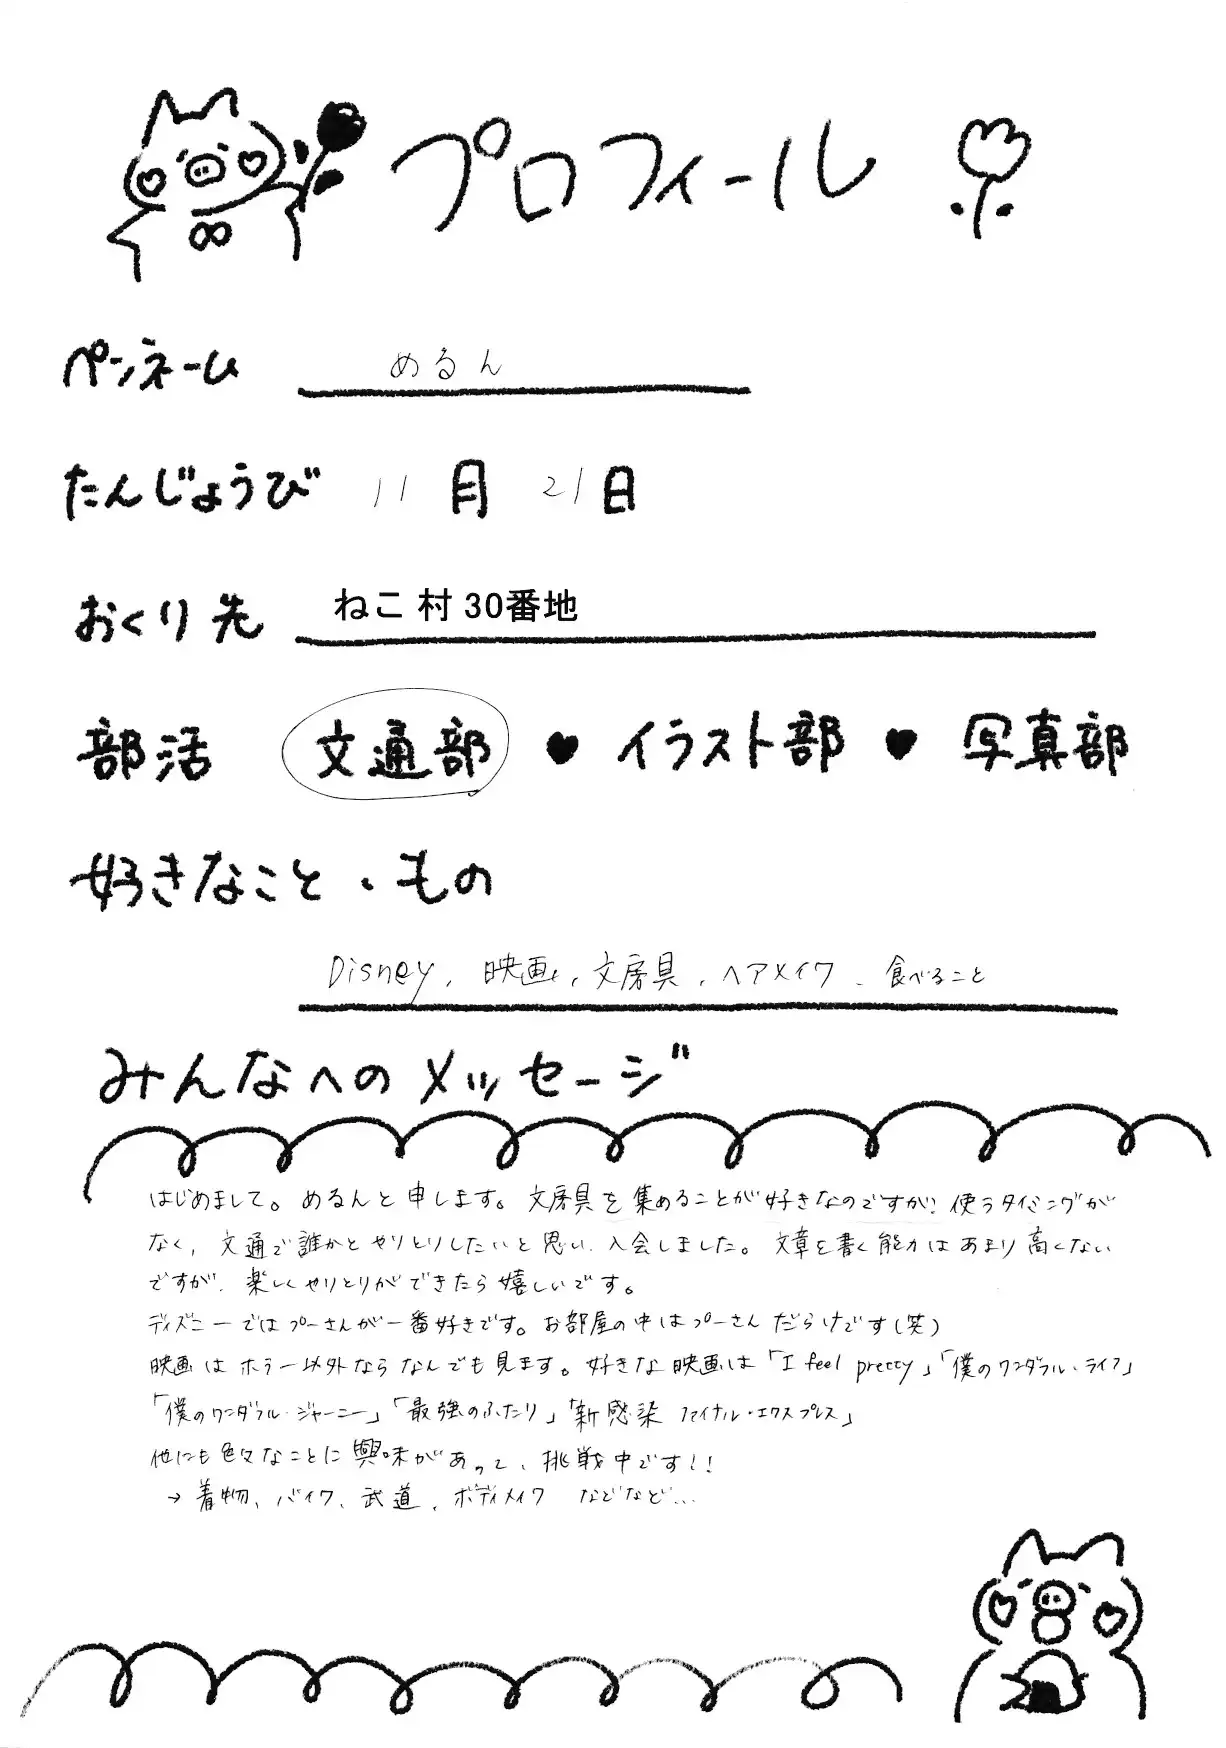 プロフィール
ペンネーム めるん
たんじょうび 11月21日
おくり先 ねこ村30番地
部活 文通部 ♥ イラスト部 ♥ 写真部
好きなこと・もの
Disney、映画、文房具、ヘアメイク、食べること
みんなへのメッセージ
はじめまして。めるんと申します。文房具を集めることが好きなのですが、使うタイミングが
なく、文通で誰かとやりとりしたいと思い、入会しました。文章を書く能力はあまり高くない
ですが、楽しくやりとりができたら嬉しいです。
ディズニーではプーさんが一番好きです。お部屋の中はプーさんだらけです(笑)
映画はホラー以外ならなんでも見ます。好きな映画は「I feel pretty」「僕のワンダフル・ライフ」
「僕のワンダフル・ジャーニー」「最強のふたり」「新感染 ファイナル・エクスプレス」
他にも色々なことに興味があって、挑戦中です!!
→ 着物、バイク、武道、ボディメイク などなど...